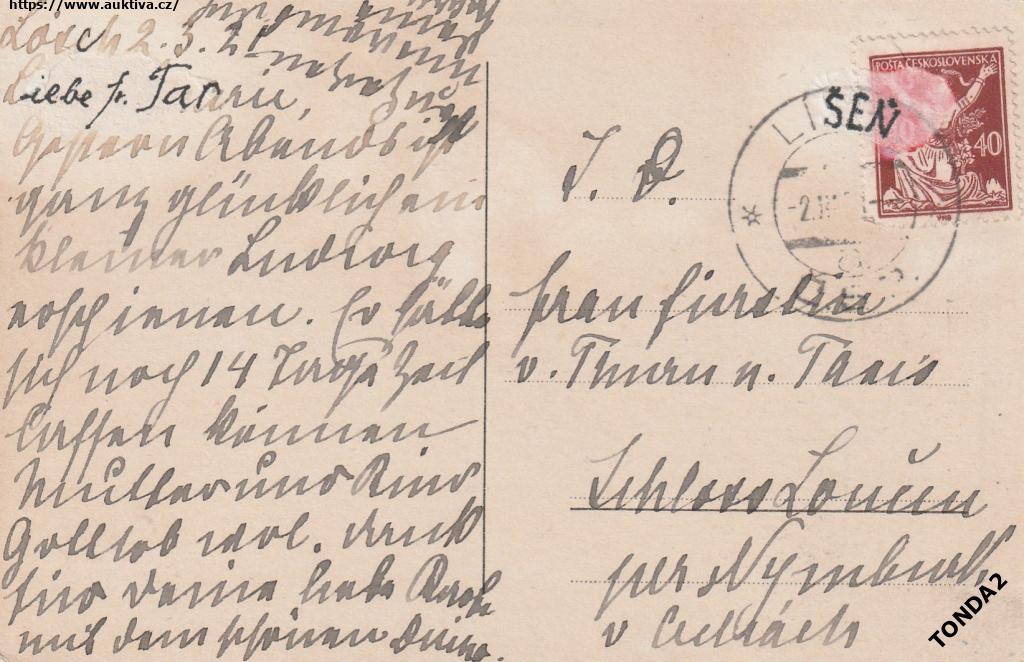 https://www.auktiva.cz/
Lösch 2.3.21
Liebe fr. Tar
Gestern Abends ist
ganz glücklich ein
kleiner Ludwig
erschienen. Er hätte
sich noch 14 Tage Zeit
lassen können
Mutter und Kind
Gottlob wol. dank
für Deine liebe Karte
mit dem schönen
POŠTA ČESKOSLOVENSKÁ
40
LIŠEŇ
-2.III
I. D.
frau fürstin
v. Thurn u. Taxis
Schloss Loučin
per Nymburk
v Čechách
TONDA2